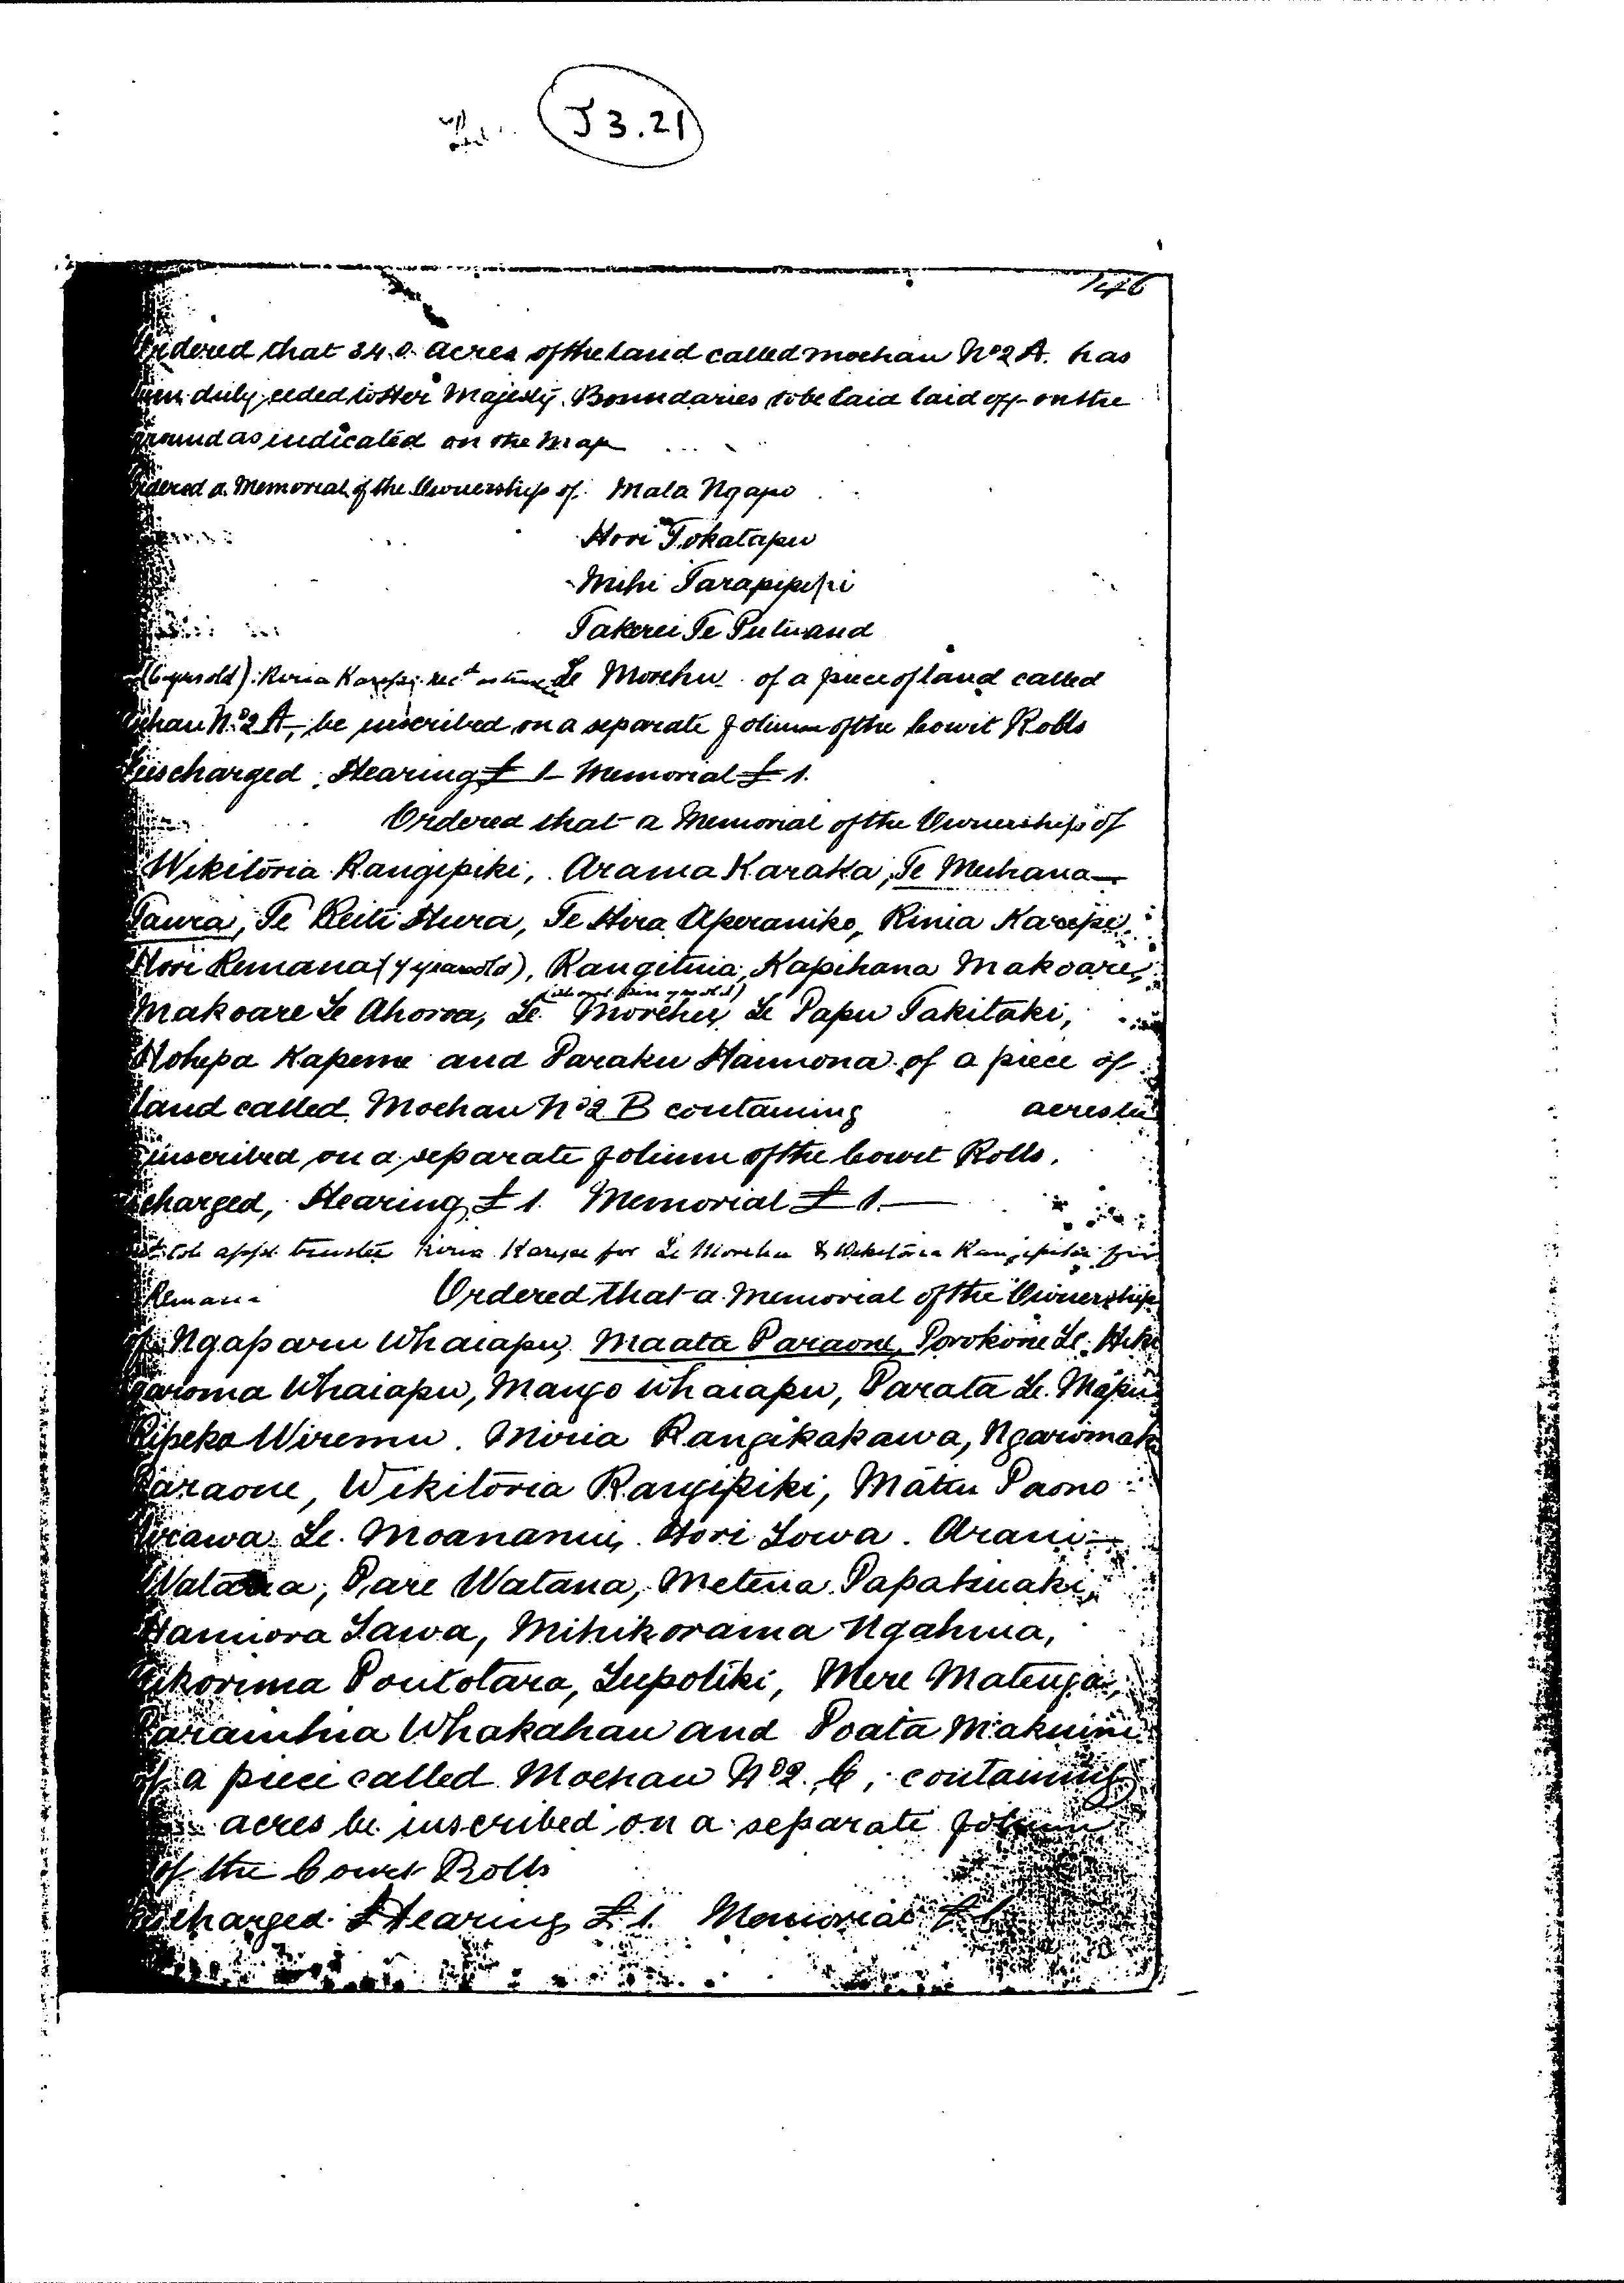 J 3.21
Ordered that 340 acres of the land called Moehau No 2 A. has
been duly ceded to Her Majesty. Boundaries to be laid laid off on the
ground as indicated on the Map
Ordered a Memorial of the Ownership of Mata Ngapo
Hori Tokatapu
Mihi Tarapipipi
Takerei Te Putu and
(6 years old) Te Morehu of a piece of land called
Moehau No 2 A, be inscribed on a separate folium of the Court Rolls
Fees charged. Hearing £1 Memorial £1.
Ordered that a Memorial of the Ownership of
Wikitoria Rangipiki, Arama Karaka, Te Meihana
Taura, Te Reiti Hura, Te Hira Aperaniko, Kiria Karepe,
Hori Remana (7 years old), Rangituia, Kapihana Makoare,
Makoare Te Ahoroa, Te Morehu, Te Papu Takitaki,
Hohepa Kapene and Paraku Hamiona of a piece of
land called Moehau No 2 B containing acres be
inscribed on a separate folium of the Court Rolls.
charged, Hearing £1 Memorial £1
appt trustee Kiria Karepe for Te Morehu & Wikitoria Rangipiki for
Remana Ordered that a Memorial of the Ownership
of Ngaparu Whaiapu, Maata Paraone, Porokoru Te Hiki
Whaiapu, Mango Whaiapu, Parata Te Mapu
Ripeka Wiremu. Miria Rangikakawa,
Paraone, Wikitoria Rangipiki, Matiu Paono
Te Moananui, Hori Towa. Arani
Watana, Pare Watana, Metera Papakuaki,
Hamiora Tawa, Mihikorama Ngahua,
Poutotara, Teepotiki, Mere Matenga,
Whakahau and Poata Makuini
of a piece called Moehau No 2. C, containing
acres be inscribed on a separate folium
of the Court Rolls
Fees charged. Hearing £1. Memorial £1